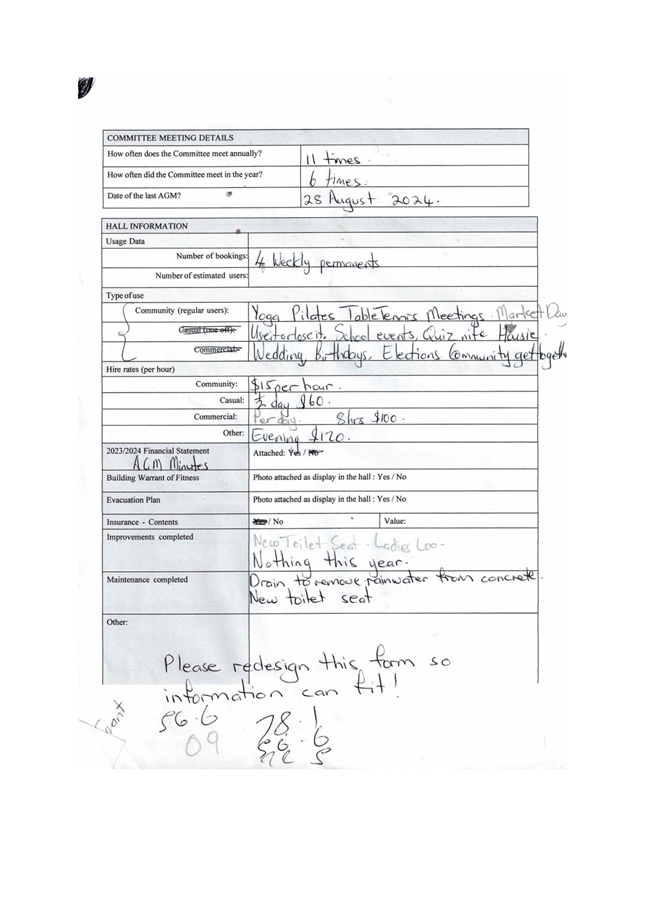 COMMITTEE MEETING DETAILS
How often does the Committee meet annually? 11 times.
How often did the Committee meet in the year? 6 times.
Date of the last AGM? 28 August 2024.
HALL INFORMATION
Usage Data
Number of bookings: 4 Weekly permanents
Number of estimated users:
Type of use
Community (regular users): Yoga Pilates Table Tennis Meetings. Market Day
Casual (one off): Use it or lose it. School events, Quiz nite Housie.
Commercial: Wedding, Birthdays, Elections Community get together
Hire rates (per hour)
Community: $15 per hour.
Casual: ½ day $60.
Commercial: Per day. 8hrs $100.
Other: Evening $120.
2023/2024 Financial Statement Attached: Yes / No
AGM Minutes
Building Warrant of Fitness Photo attached as display in the hall : Yes / No
Evacuation Plan Photo attached as display in the hall : Yes / No
Insurance - Contents Yes / No Value:
Improvements completed New Toilet Seat. Ladies Loo-
Nothing this year.
Maintenance completed Drain to remove rainwater from concrete.
New toilet seat
Other:
Please redesign this form so
information can fit!
56.6 78.1
09 56.6